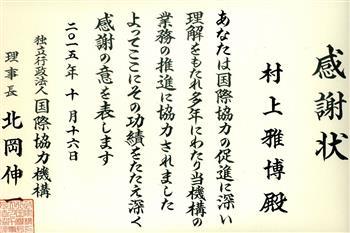 感謝状
村上雅博殿
あなたは国際協力の促進に深い
理解をもたれ多年にわたり当機構の
業務の推進に協力されました
よってここにその功績をたたえ深く
感謝の意を表します
二〇一五年十月十六日
独立行政法人国際協力機構
理事長 北岡伸一